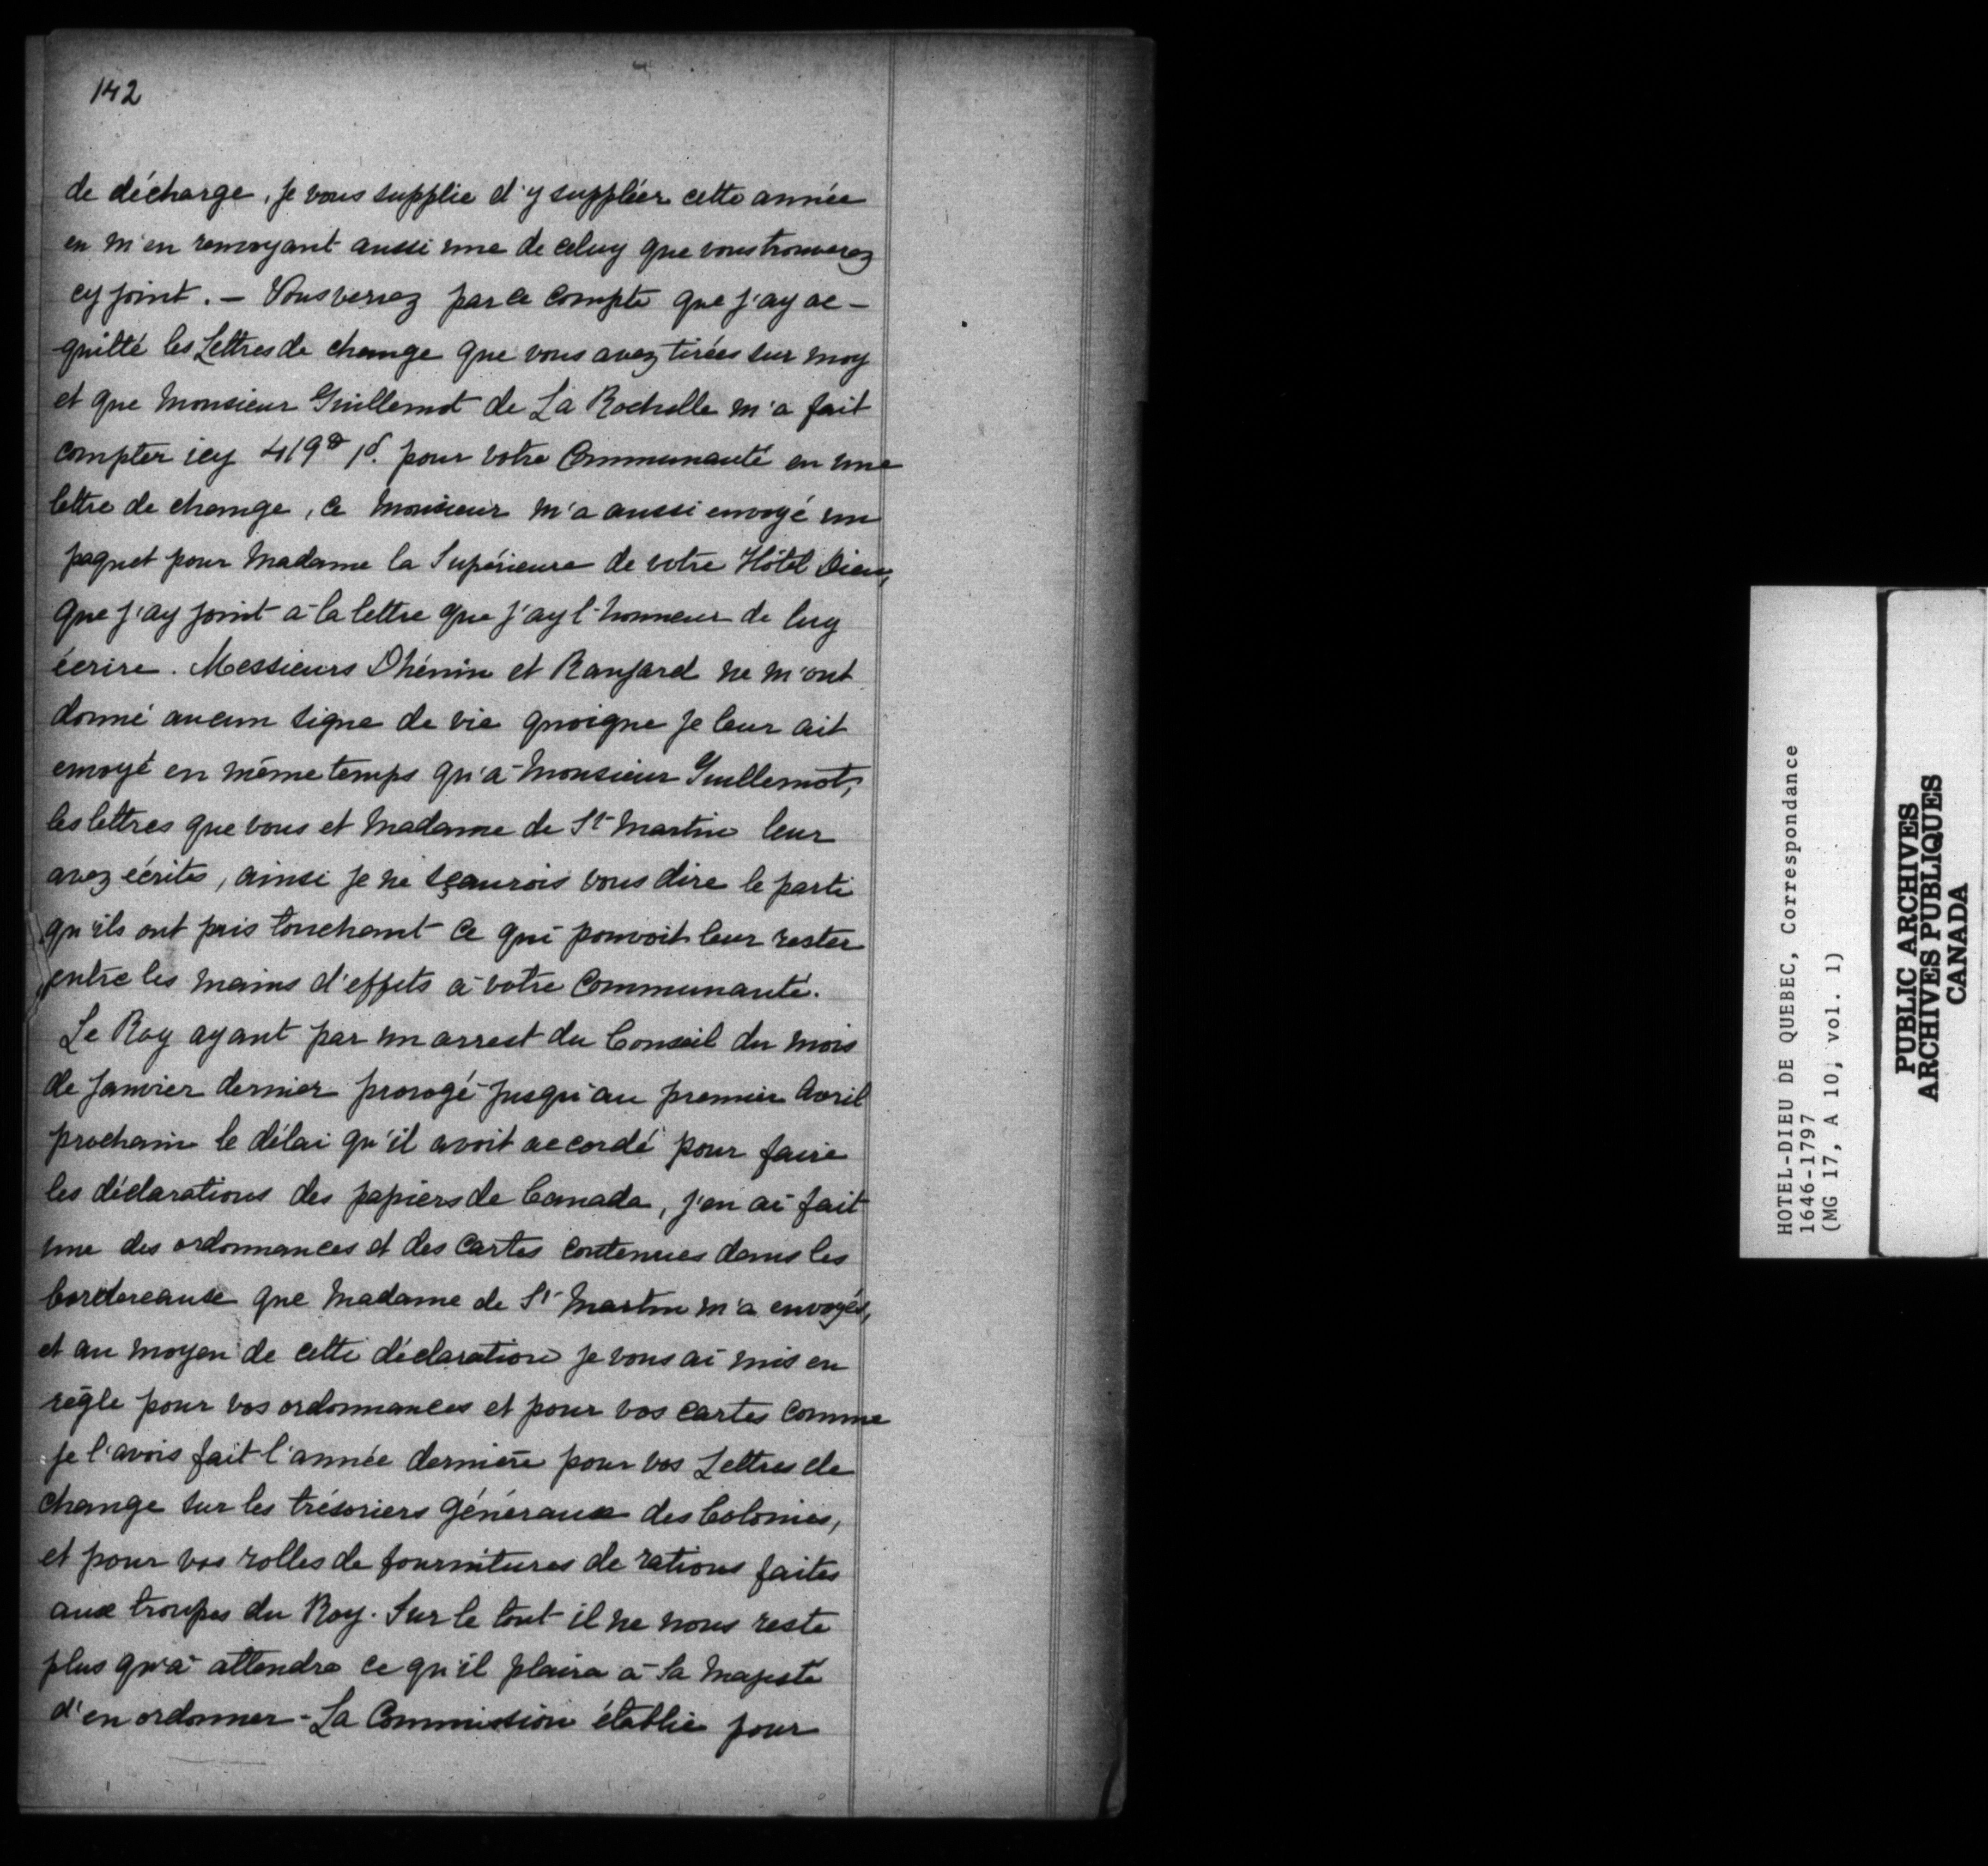 142
de décharge, je vous supplie d'y suppléer cette année
en m'en renvoyant aussi une de celuy que vous trouverez
cy joint. – Vous verrez par ce compte que j'ay ac-
quitté les Lettres de change que vous avez tirées sur moy
et que Monsieur Guillemot de La Rochelle m'a fait
compter icy 419 1 pour votre Communauté en une
lettre de change, ce Monsieur m'a aussi envoyé un
paquet pour Madame la Supérieure de votre Hôtel Dieu,
que j'ay joint à la lettre que j'ay l'honneur de luy
écrire. Messieurs Dhénin et Ranjard ne m'ont
donné aucun signe de vie quoique je leur ait
envoyé en même temps qu'à Monsieur Guillemot,
les lettres que vous et Madame de St Martin leur
avez écrites, ainsi je ne sçaurois vous dire le parti
qu'ils ont pris touchant ce qui pouvoit leur rester
entre les mains d'effets à votre Communauté.
Le Roy ayant par un arrest du Conseil du mois
de Janvier dernier prorogé jusqu'au premier Avril
prochain le délai qu'il avoit accordé pour faire
les déclarations des papiers de Canada, j'en ai fait
une des ordonnances et des cartes contenues dans les
bordereaux que Madame de St Martin m'a envoyés,
et au moyen de cette déclaration je vous ai mis en
règle pour vos ordonnances et pour vos cartes comme
je l'avois fait l'année dernière pour vos Lettres de
change sur les trésoriers généraux des Colonies,
et pour vos rolles de fournitures de rations faites
aux troupes du Roy. Sur le tout il ne nous reste
plus qu'à attendre ce qu'il plaira à Sa Majesté
d'en ordonner – La Commission établie pour
HOTEL-DIEU DE QUEBEC, Correspondance
1646-1797
(MG 17, A 10, vol. 1)
PUBLIC ARCHIVES
ARCHIVES PUBLIQUES
CANADA